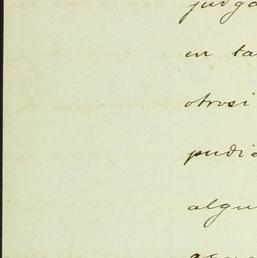 juzga
en ta
otrosi
pudie
algu